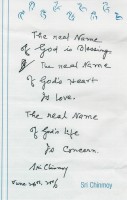 The real Name
of God is Blessings
The real Name
of God's Heart
Is Love.
The real Name
of God's Life
Is Concern.
Sri Chinmoy
Sri Chinmoy